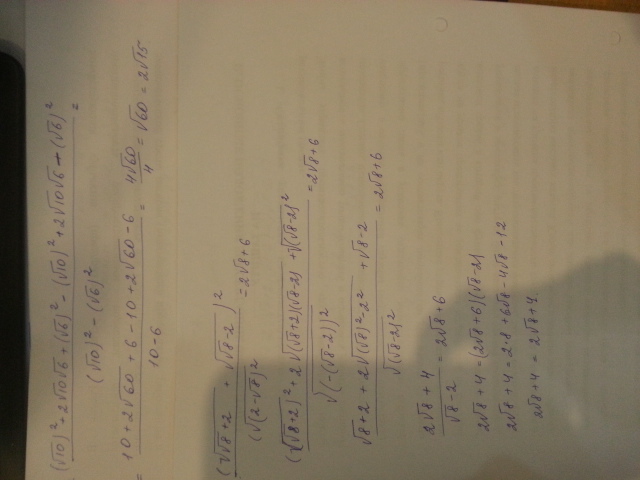 (√10)² + 2√10√6 + (√6)² - (√10)² + 2√10√6 - (√6)² =
(√10)² - (√6)²
= 10 + 2√60 + 6 - 10 + 2√60 - 6 = 4√60 = √60 = 2√15
10 - 6 4
(√√8+2 + √√8-2)² = 2√8+6
(√(2-√8)²
(√√8+2)² + 2√(√8+2)(√8-2) + √(√8-2)² = 2√8+6
√(-(√8-2))²
√8+2 + 2√(√8)²-2² + √8-2 = 2√8+6
√(√8-2)²
2√8 + 4 = 2√8+6
√8-2
2√8+4 = (2√8+6)(√8-2)
2√8+4 = 2·8+6√8-4√8-12
2√8+4 = 2√8+4.